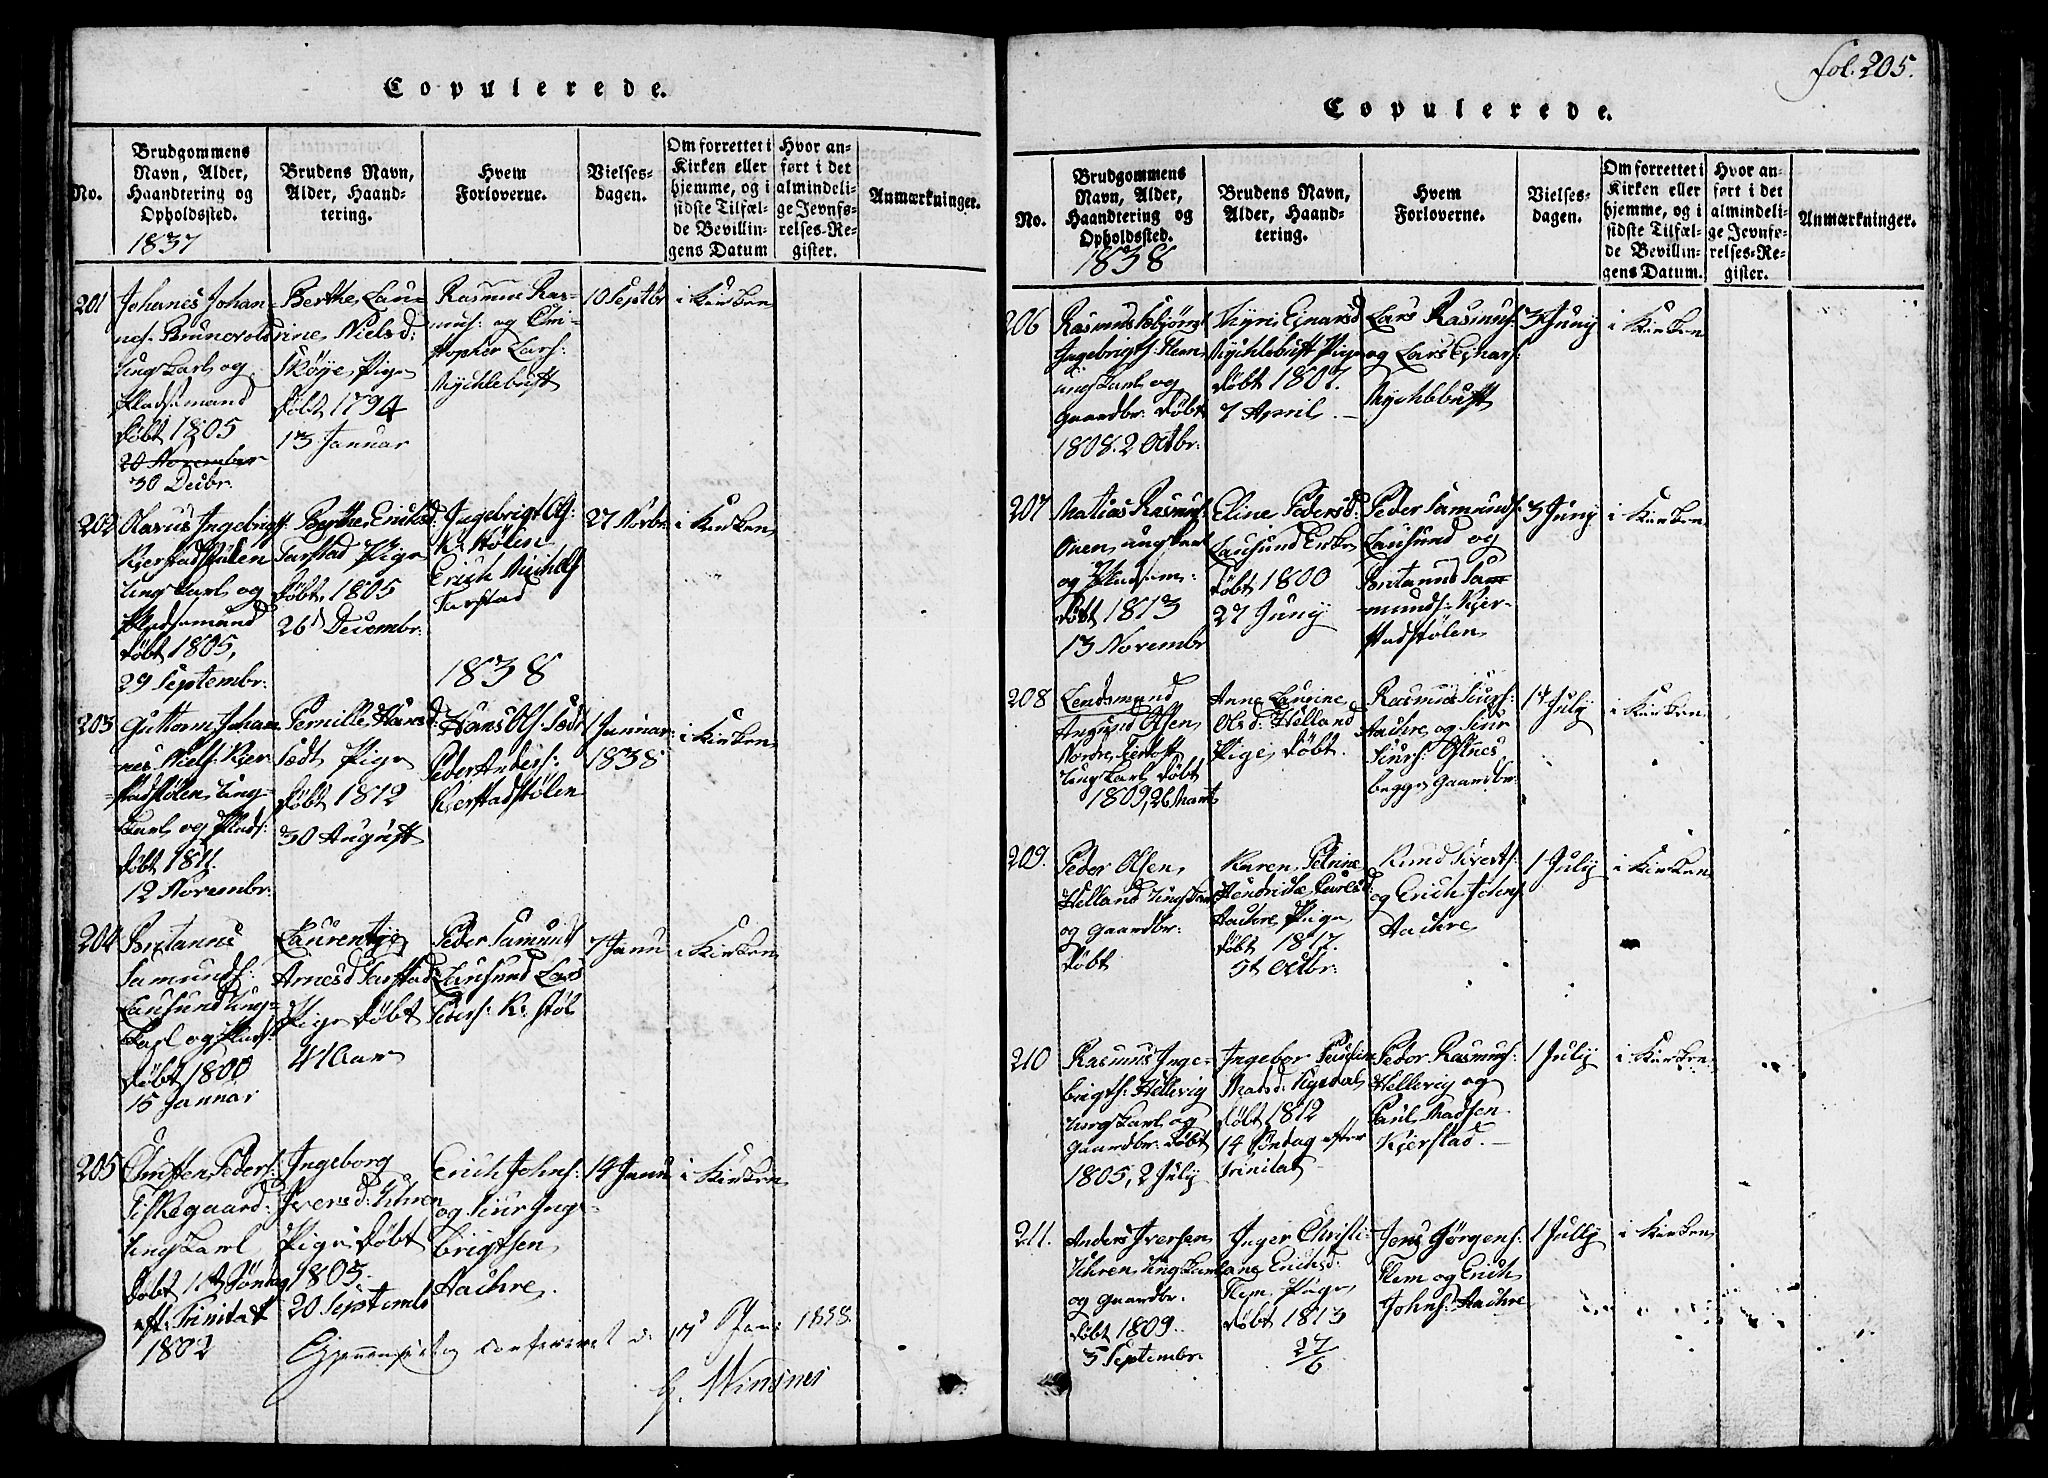 Copulerede.
No.
Brudgommens
Navn, Alder,
Haandtering og
Opholdssted.
1837
Brudens Navn,
Alder, Haand-
tering.
Hvem
Forloverne.
Vielses-
dagen.
Om forrettet i
Kirken eller
hjemme, og i
sidste Tilfæl-
de Bevillin-
gens Datum
Hvor an-
ført i det
almindeli-
ge Jevnfø-
relses-Re-
gister.
Anmærkninger.
201
Johanes Johan-
nes: Brunvold
Ungkarl og
Pladsmand
døbt 1805
20 November
30 Decbr.
Berthe Lau-
rine Nielsd:
Skøye, Pige
døbt 1794
13 Januar
Rasmus Ras-
mus: og Chri-
stopher Lars:
Mychlebust
10 Septbr
i Kirken
202
Olavus Ingebrigts:
Kjerstadstølen
Ungkarl og
Pladsmand
døbt 1805,
29 Septembr:
Berthe Erichsd.
Tarstad Pige
døbt 1805
26 Decembr:
Ingebrigt Ols:
K: Stølen
Erich
Tarstad
27 Novbr
i Kirken
1838
203
Guttorm Johan-
nes Niels: Kjer-
stadstølen, Ung-
karl og Plads:
døbt 1811.
12 Novembr:
Pernille Hansd:
Sædt Pige
døbt 1812
30 August
Hans Ols: Sædt
Peder Anders:
Kjerstadstølen
1 Januar:
1838
i Kirken
204
Britanus
Samunds:
Lausund Ung-
karl og Plads:
døbt 1800
15 Januar
Laurentje
Arnesd Tarstad
Pige døbt
41 Aar
Peder Samund
Lausund Lars
Peders: K: Støl
7 Janu
i Kirken
205
Christen Peders:
Fiskegaard:
Ungkarl
døbt 11te Søndag
eft. Trinitat
1802
Ingeborg
Iversd: Uhren
Pige, døbt
1805.
20 Septembr
Erich Johns:
og Siur Inge-
brigtsen
Aachre.
14 Janu
i Kirken
Gjennemset og confereret d: 17 Jan: 1838.
G. Winsnes
fol. 205.
Copulerede.
No.
Brudgommens
Navn, Alder,
Haandtering og
Opholdssted.
1838
Brudens Navn,
Alder, Haand-
tering.
Hvem
Forloverne.
Vielses-
dagen.
Om forrettet i
Kirken eller
hjemme, og i
sidste Tilfæl-
de Bevillin-
gens Datum.
Hvor an-
ført i det
almindeli-
ge Jevnfø-
relses-Re-
gister.
Anmærkninger.
206
Rasmus
Ingebrigts: Flem
ungkarl og
gaardbr: døbt
1808. 2 Octbr:
Kyri Ejnarsd
Mychlebust Pige
døbt 1807.
7 April. —
Lars Rasmus:
og Lars Ejnars:
Mychlbust
3 Juny
i Kirken
207
Matias Rasmus:
Onen, ungkarl
og Pladsm:
døbt 1813
13 Novembr
Eline Pedersd:
Lausund Enke
døbt 1800
27 Juny
Peder Samunds:
Lausund og
Britanus Sa-
munds: Kjer-
stadstølen
3 Juny
i Kirken
208
Lensmand
Olsen,
Nordre
Ungkarl døbt
1809, 26 Marts
Anne Laurine
Olsd: Helland
Pige, døbt.
Rasmus Siurs:
Aachre, og Siur
Siurs: Ostnes
begge Gaardbr:
1 July
i Kirken
209.
Peder Olsen,
Helland Ungkarl
og gaardbr:
døbt
Karen Petrine
Hendrikke
Aachre Pige
døbt 1817.
5t Octbr:
Knud Siverts:
og Erich Johns:
Aachre
1 July
i Kirken
210
Rasmus Inge-
brigts: Hellevig
Ungkarl og
gaardbr: døbt
1805, 2 July
Ingebor Pauline
Madsd:
døbt 1812
14 Søndag efter
Trinitat
Peder Rasmus:
Hellevig og
Paul Madsen
Kjerstad. —
1 July
i Kirken
211.
Anders Iversen
Uhren Ungkarl
og gaardbr.
døbt 1809.
5 Septembr:
Inger Christi-
ane Erichsd:
Flem, Pige
døbt 1813
27/6
Jens Jørgens:
Flem og Erich
Johns: Aachre
1 Jully
i Kirken